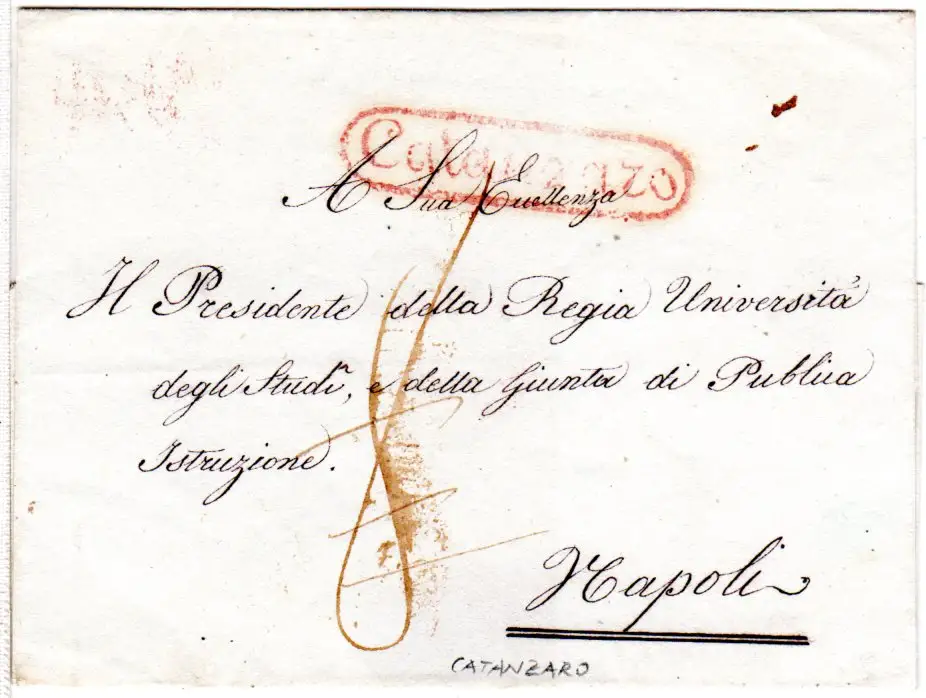 Catanzaro
A Sua Eccellenza
Il Presidente della Regia Università
degli Studi, e della Giunta di Publica
Istruzione.
8
Napoli
CATANZARO